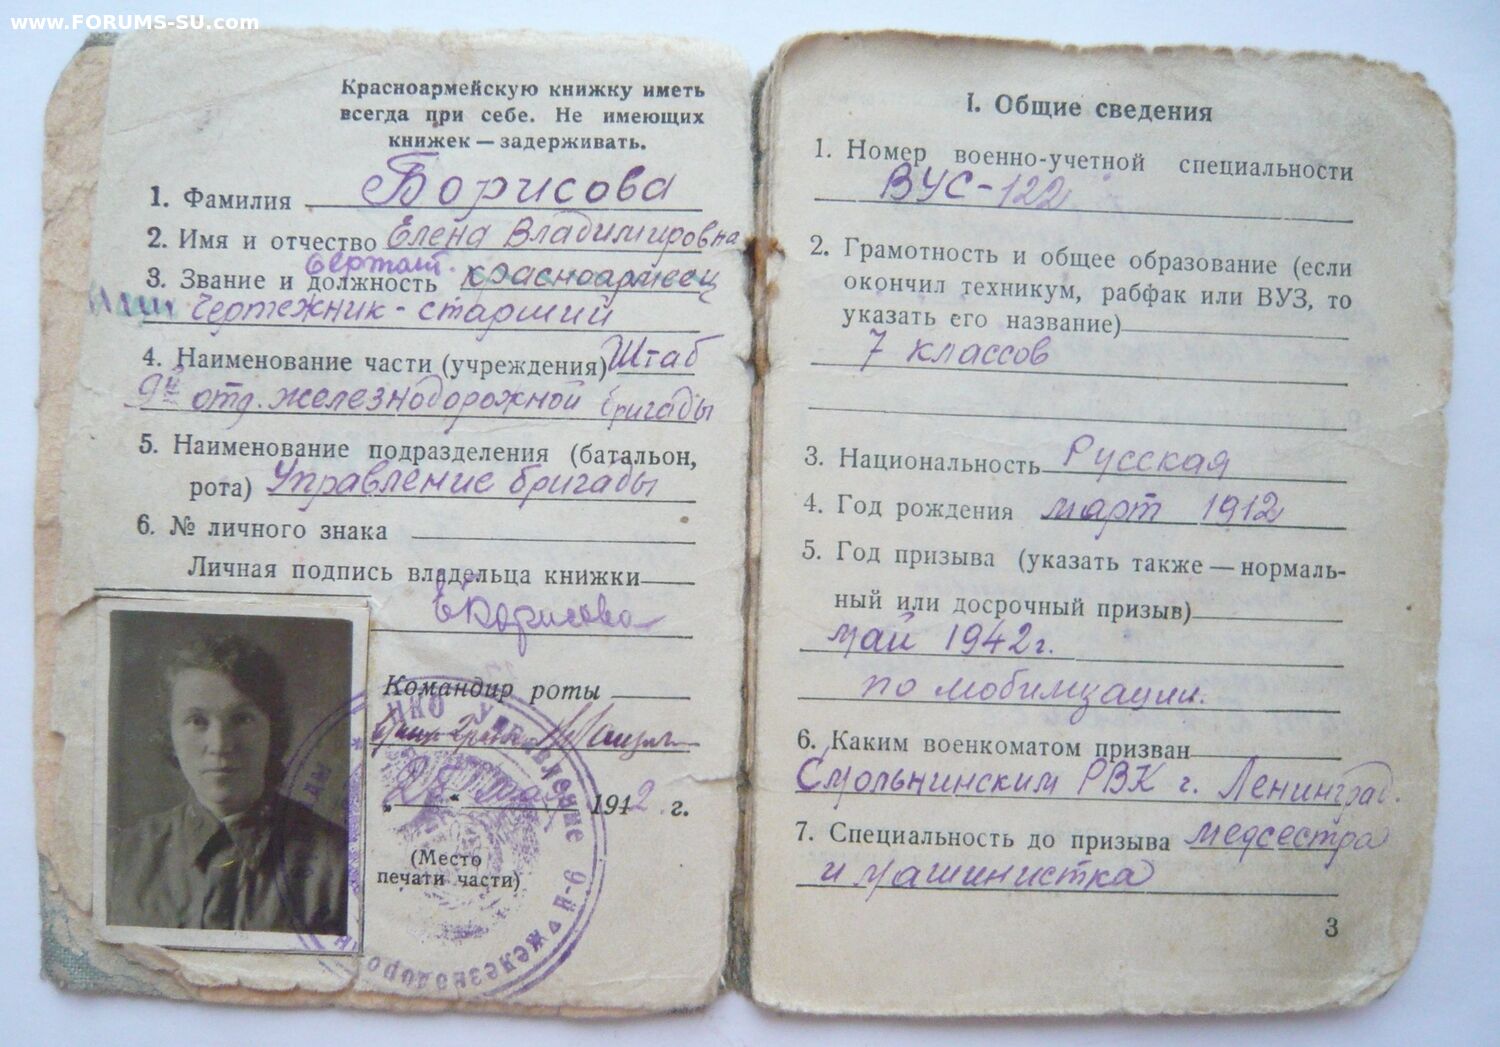 www.FORUMS-SU.com
Красноармейскую книжку иметь
всегда при себе. Не имеющих
книжек — задерживать.
1. Фамилия Борисова
2. Имя и отчество Елена Владимировна
Сержант.
3. Звание и должность красноармеец
чертежник - старший
4. Наименование части (учреждения) Штаб
9й отд. железнодорожной бригады
5. Наименование подразделения (батальон,
рота) Управление бригады
6. № личного знака
Личная подпись владельца книжки
ЕБорисова
Командир роты
„25“ 1942 г.
(Место
печати части)
НКО Управление 9-й железнодоро
I. Общие сведения
1. Номер военно-учетной специальности
ВУС-122
2. Грамотность и общее образование (если
окончил техникум, рабфак или ВУЗ, то
указать его название)
7 классов
3. Национальность Русская
4. Год рождения март 1912
5. Год призыва (указать также — нормаль-
ный или досрочный призыв)
май 1942г.
по мобилизации.
6. Каким военкоматом призван
Смольнинским РВК г. Ленинград.
7. Специальность до призыва медсестра
и машинистка
3